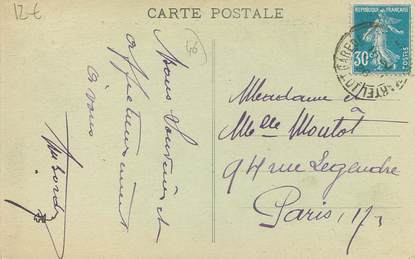 12 €
CARTE POSTALE
REPUBLIQUE FRANÇAISE
30c
POSTES
GARE
Souvenir et
affectueusement
à vous
Madame et
Melle Moutot
94 rue Legendre
Paris, 17